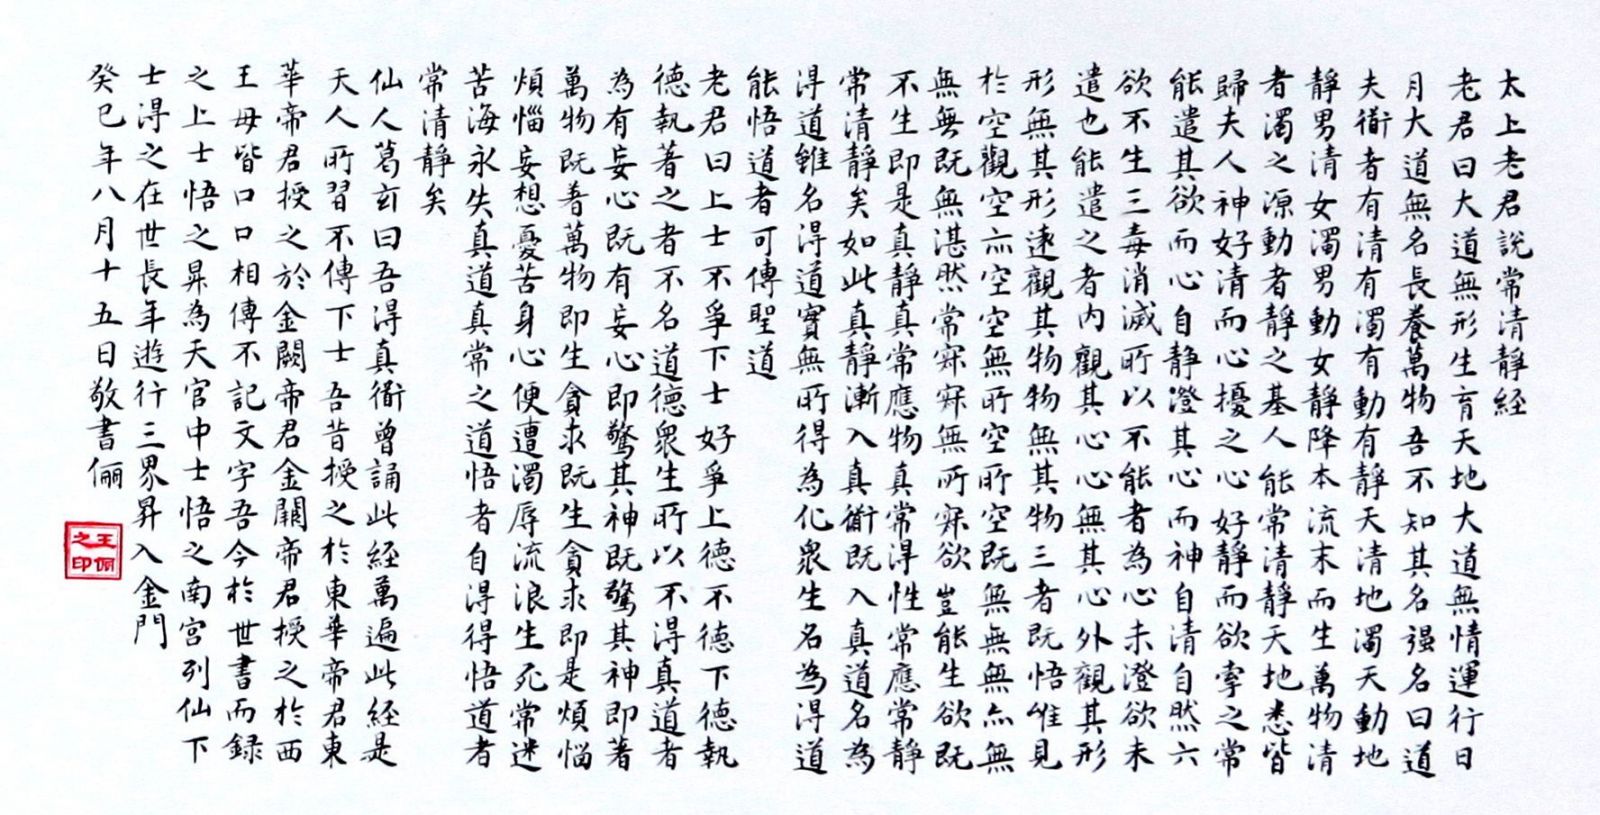 太上老君說常清靜經
老君曰大道無形生育天地大道無情運行日
月大道無名長養萬物吾不知其名强名曰道
夫衜者有清有濁有動有靜天清地濁天動地
靜男清女濁男動女靜降本流末而生萬物清
者濁之源動者靜之基人能常清靜天地悉皆
歸夫人神好清而心擾之心好靜而欲牽之常
能遣其欲而心自靜澄其心而神自清自然六
欲不生三毒消滅所以不能者為心未澄欲未
遣也能遣之者內觀其心心無其心外觀其形
形無其形遠觀其物物無其物三者既悟唯見
於空觀空亦空空無所空所空既無無無亦無
無無既無湛然常寂寂無所寂欲豈能生欲既
不生即是真靜真常應物真常得性常應常靜
常清靜矣如此真靜漸入真衜既入真道名為
得道雖名得道實無所得為化衆生名為得道
能悟道者可傳聖道
老君曰上士不爭下士好爭上德不德下德執
德執著之者不名道德衆生所以不得真道者
為有妄心既有妄心即驚其神既驚其神即著
萬物既著萬物即生貪求既生貪求即是煩惱
煩惱妄想憂苦身心便遭濁辱流浪生死常迷
苦海永失真道真常之道悟者自得得悟道者
常清靜矣
仙人葛玄曰吾得真衜曾誦此經萬遍此經是
天人所習不傳下士吾昔授之於東華帝君東
華帝君授之於金闕帝君金闕帝君授之於西
王母皆口口相傳不記文字吾今於世書而録
之上士悟之昇為天官中士悟之南宮列仙下
士得之在世長年遊行三界昇入金門
癸巳年八月十五日敬書儷
王之印